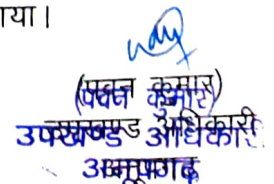 गया।
(पवन कुमार)
उपखण्ड अधिकारी
अनूपगढ़